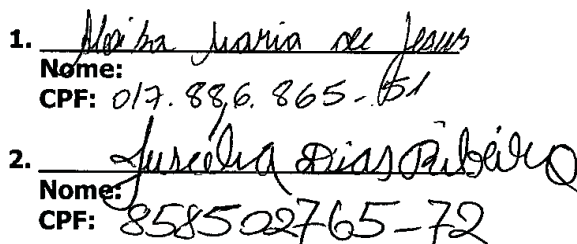 1. Maria de Jesus
Nome:
CPF: 017.886.865-51
2. Jucélia Dias Ribeiro
Nome:
CPF: 858502765-72